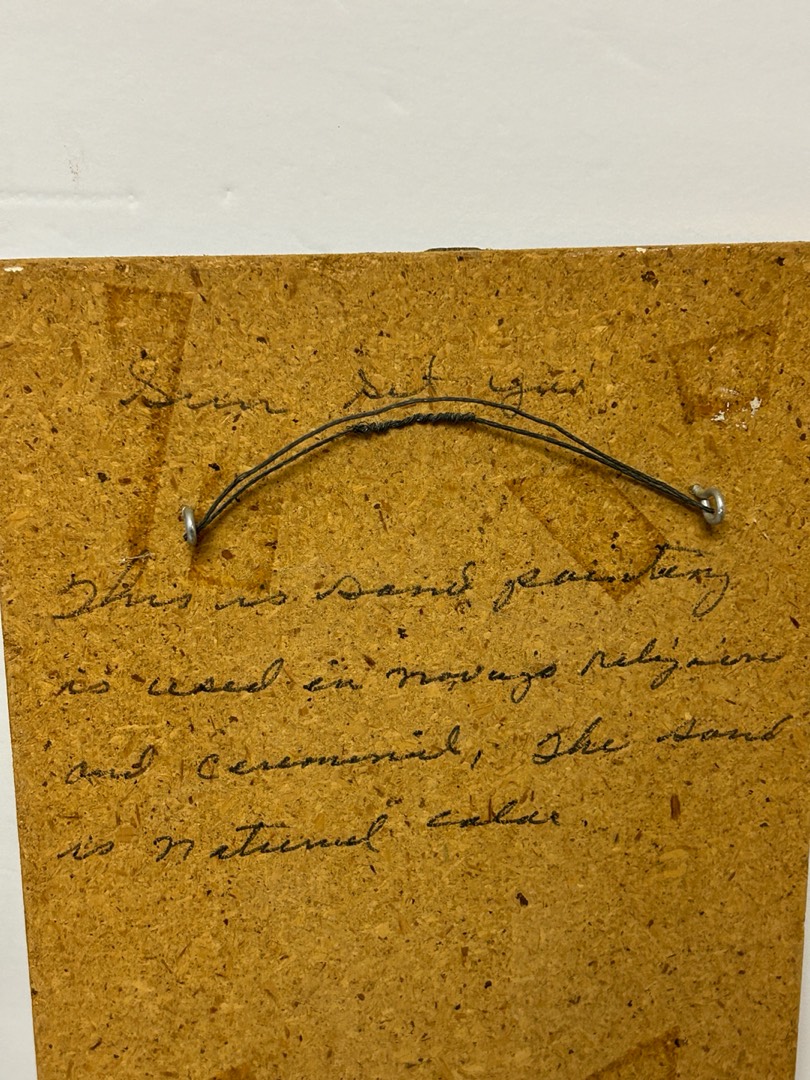 Sun Set
This is sand painting
is used in navajo religion
and ceremonial, The sand
is natural color.